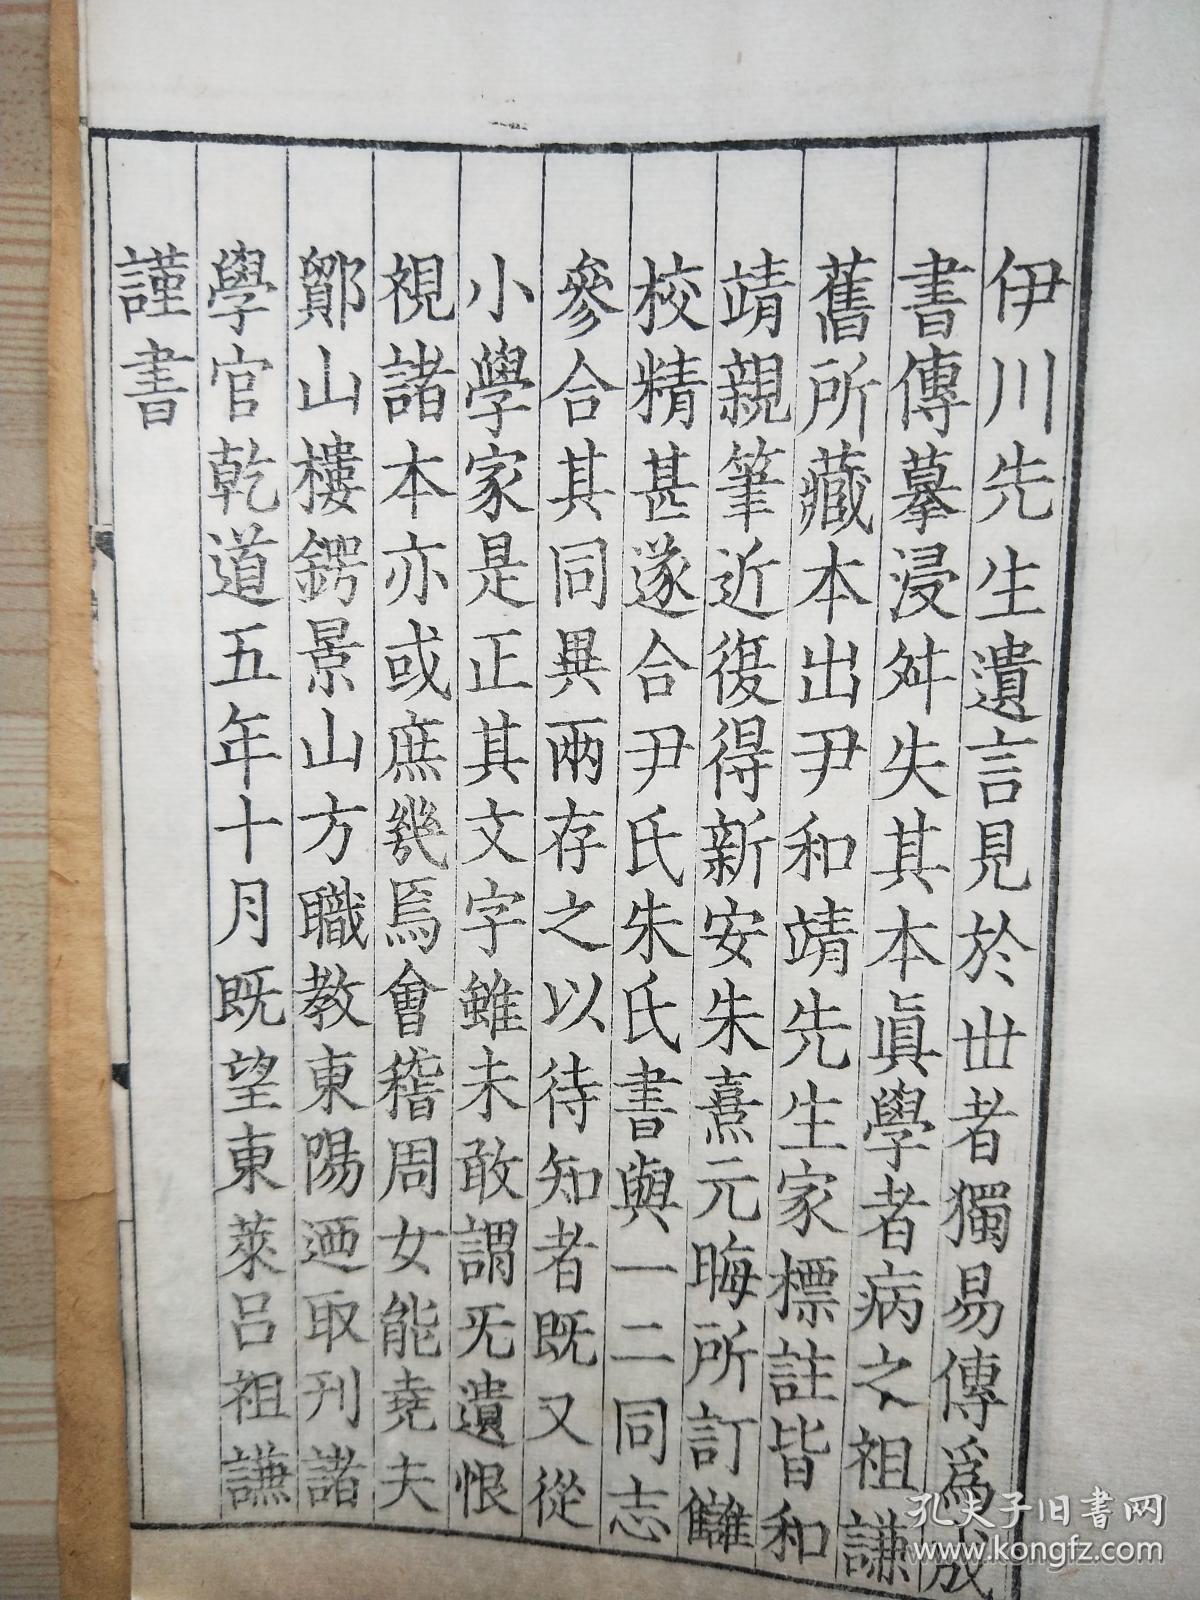 伊川先生遺言見於丗者獨易傳爲成
書傳摹浸舛失其本眞學者病之祖謙
舊所藏本出尹和靖先生家標註皆和
靖親筆近復得新安朱熹元晦所訂讎
校精甚遂合尹氏朱氏書與一二同志
參合其同異兩存之以待知者既又從
小學家是正其文字雖未敢謂无遺恨
視諸本亦或庶幾焉會稽周女能堯夫
鄮山樓鍔景山方職教東陽迺取刊諸
學官乾道五年十月既望東萊呂祖謙
謹書
孔夫子旧书网
www.kongfz.com